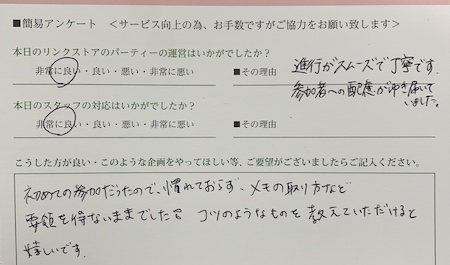 ■簡易アンケート ＜サービス向上の為、お手数ですがご協力をお願い致します＞
本日のリンクストアのパーティーの運営はいかがでしたか？
非常に良い・良い・悪い・非常に悪い ■その理由 進行がスムーズで丁寧です。
参加者への配慮が行き届いて
いました。
本日のスタッフの対応はいかがでしたか？
非常に良い・良い・悪い・非常に悪い ■その理由
こうした方が良い・このような企画をやってほしい等、ご要望がございましたらご記入ください。
初めての参加だったので、慣れておらず、メモの取り方など
要領を得ないままでした コツのようなものを教えていただけると
嬉しいです。